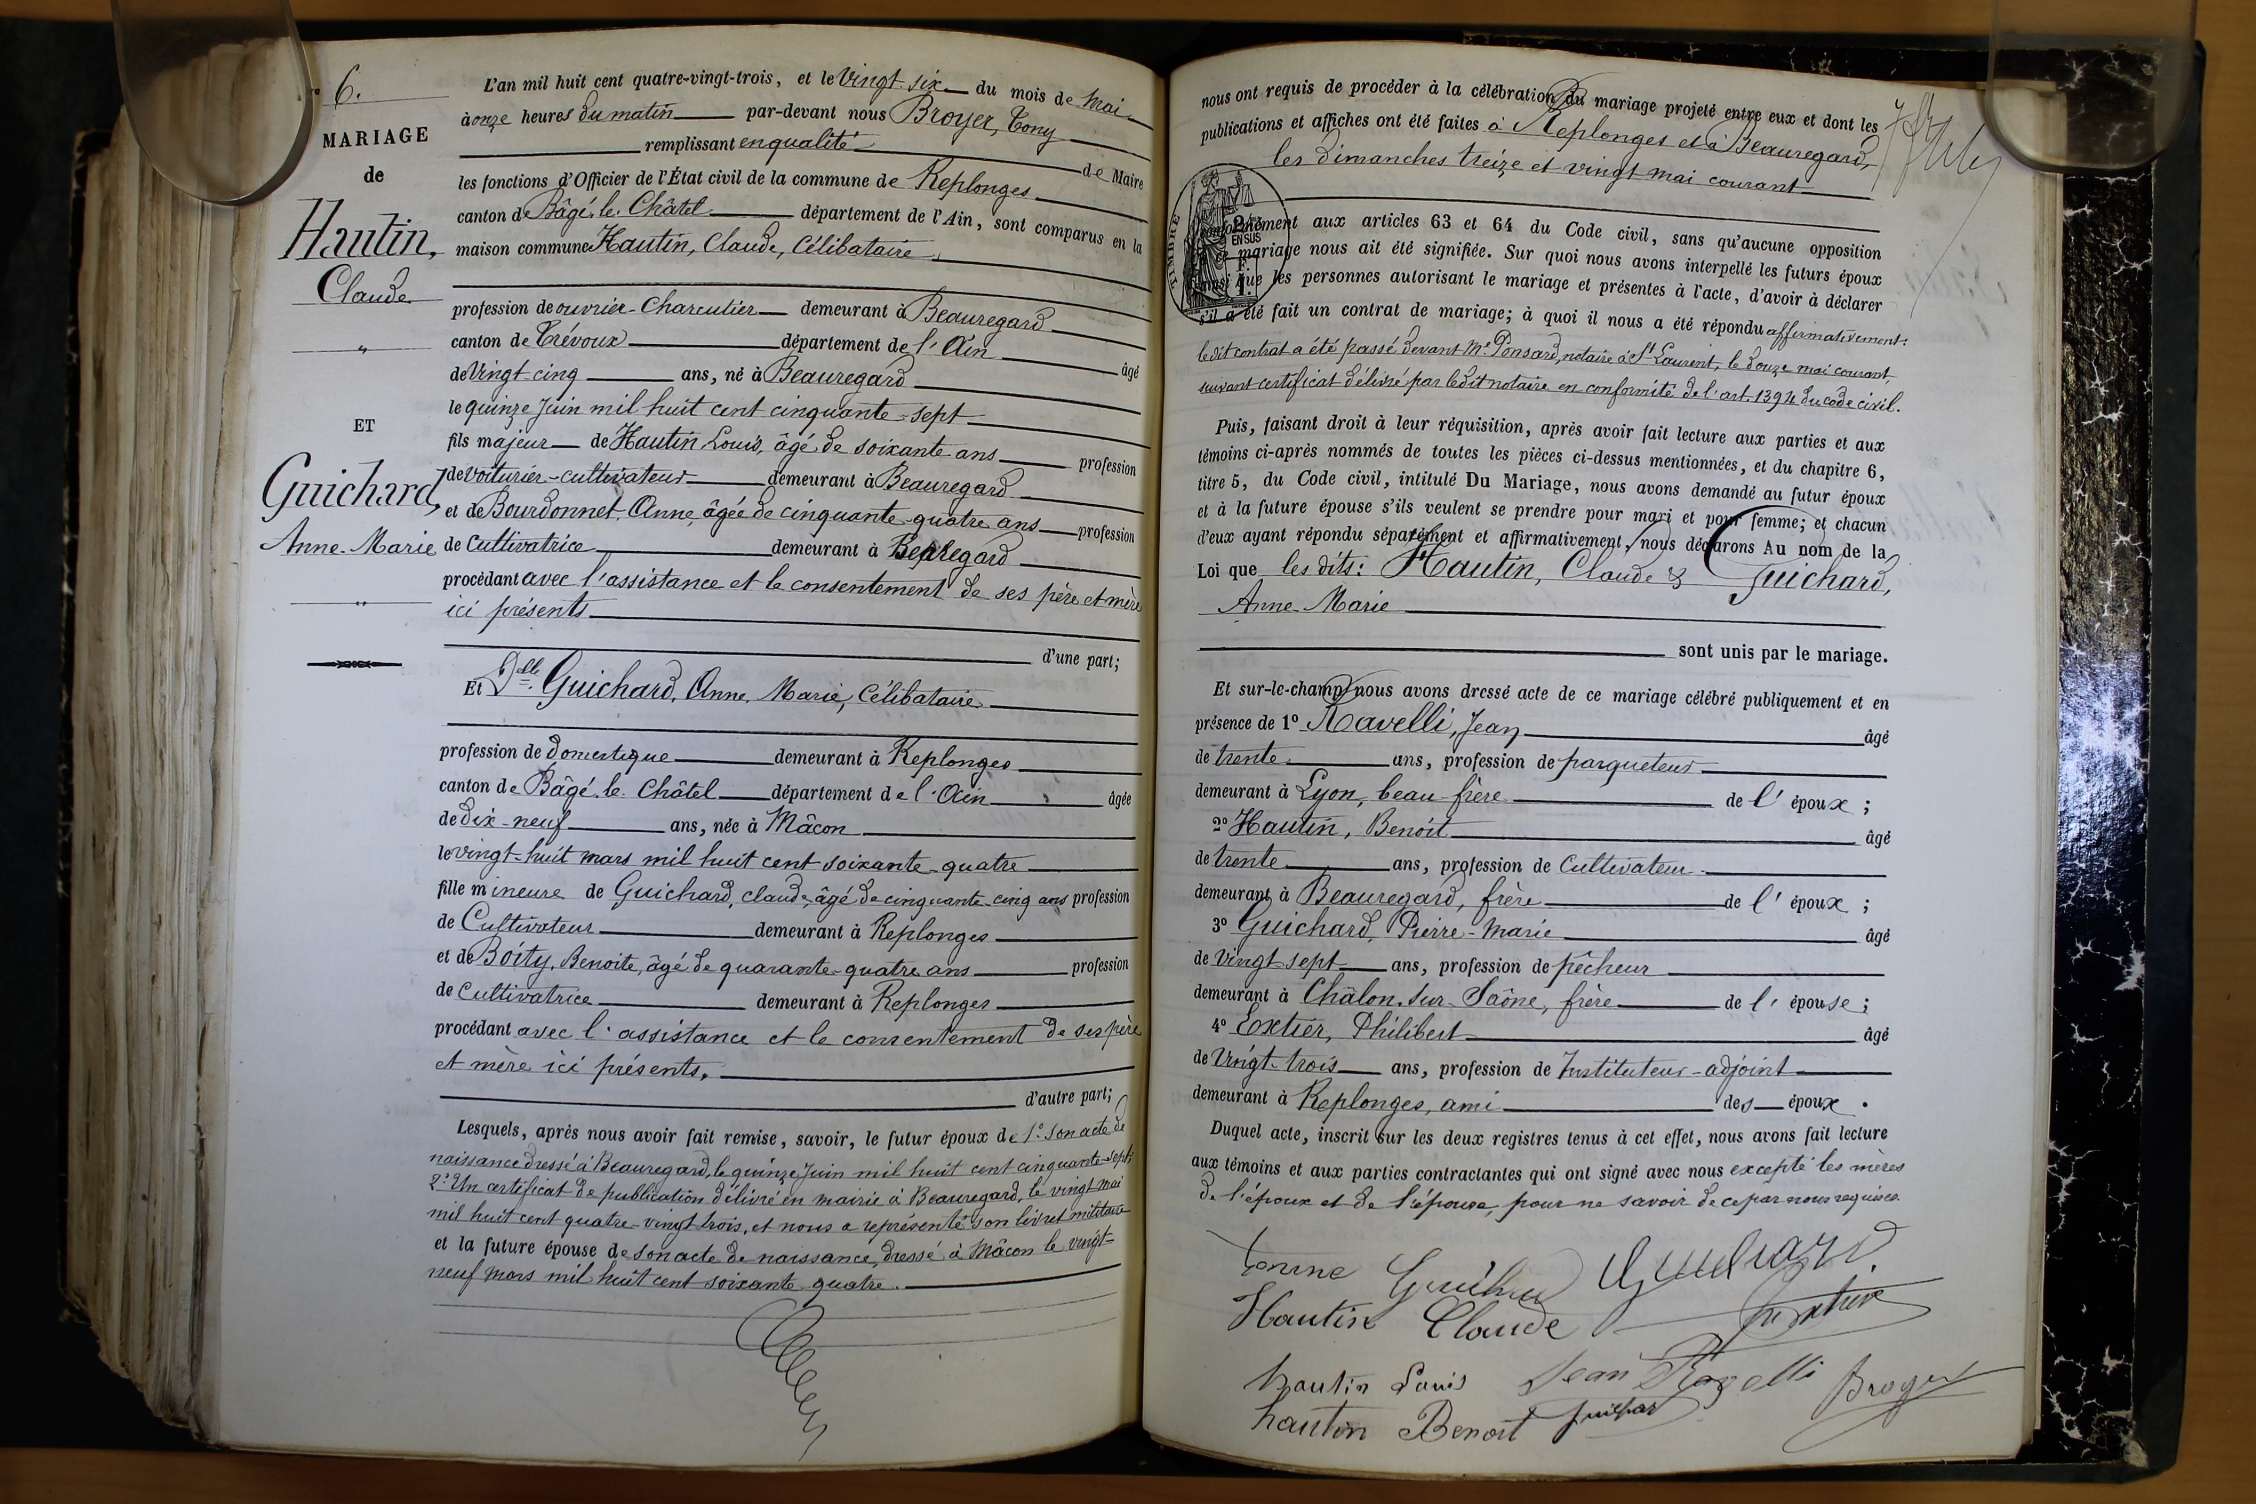 6.
MARIAGE
de
Hautin,
Claude
"
ET
Guichard,
Anne-Marie
"
L'an mil huit cent quatre-vingt-trois, et le Vingt-six du mois de Mai
à onze heures du matin par-devant nous Broyer, Tony
remplissant en qualité de Maire
les fonctions d'Officier de l'État civil de la commune de Replonges
canton de Bâgé-le-Châtel département de l'Ain, sont comparus en la
maison commune Hautin, Claude, Célibataire
profession de ouvrier-Charcutier demeurant à Beauregard
canton de Trévoux département de l'Ain âgé
de Vingt-cinq ans, né à Beauregard
le quinze Juin mil huit cent cinquante-sept
fils majeur de Hautin Louis, âgé de soixante ans profession
de voiturier-cultivateur demeurant à Beauregard
et de Bourdonnet, Anne, âgée de cinquante-quatre ans profession
de Cultivatrice demeurant à Bearegard
procédant avec l'assistance et le consentement de ses père et mère
ici présents
d'une part;
Et Delle Guichard, Anne-Marie, Célibataire
profession de domestique demeurant à Replonges
canton de Bâgé-le-Châtel département de l'Ain âgée
de dix-neuf ans, née à Mâcon
le vingt-huit mars mil huit cent soixante-quatre
fille mineure de Guichard, claude, âgé de cinquante-cinq ans profession
de Cultivateur demeurant à Replonges
et de Boity, Benoite, âgé de quarante-quatre ans profession
de Cultivatrice demeurant à Replonges
procédant avec l'assistance et le consentement de ses père
et mère ici présents,
d'autre part;
Lesquels, après nous avoir fait remise, savoir, le futur époux de 1° son acte de
naissance dressé à Beauregard, le quinze Juin mil huit cent cinquante-sept;
2° Un certificat de publication délivré en mairie à Beauregard, le vingt mai
mil huit cent quatre-vingt trois, et nous a représenté son livret militaire
et la future épouse de son acte de naissance, dressé à Mâcon le vingt-
neuf mars mil huit cent soixante-quatre.
nous ont requis de procéder à la célébration du mariage projeté entre eux et dont les
publications et affiches ont été faites à Replonges et à Beauregard,
les dimanches treize et vingt mai courant
TIMBRE
EN SUS
conformément aux articles 63 et 64 du Code civil, sans qu'aucune opposition
mariage nous ait été signifiée. Sur quoi nous avons interpellé les futurs époux
que les personnes autorisant le mariage et présentes à l'acte, d'avoir à déclarer
s'il a été fait un contrat de mariage; à quoi il nous a été répondu affirmativement:
ledit contrat a été passé devant Me Ponsard, notaire à St Laurent, le douze mai courant,
suivant certificat délivré par ledit notaire en conformité de l'art. 1394 du code civil.
Puis, faisant droit à leur réquisition, après avoir fait lecture aux parties et aux
témoins ci-après nommés de toutes les pièces ci-dessus mentionnées, et du chapitre 6,
titre 5, du Code civil, intitulé Du Mariage, nous avons demandé au futur époux
et à la future épouse s'ils veulent se prendre pour mari et pour femme; et chacun
d'eux ayant répondu séparément et affirmativement, nous déclarons Au nom de la
Loi que les dits: Hautin, Claude & Guichard,
Anne-Marie
sont unis par le mariage.
Et sur-le-champ nous avons dressé acte de ce mariage célébré publiquement et en
présence de 1° Ravelli, Jean âgé
de trente ans, profession de parqueteur
demeurant à Lyon, beau-frère de l'époux;
2° Hautin, Benoit âgé
de trente ans, profession de Cultivateur
demeurant à Beauregard, frère de l'époux;
3° Guichard, Pierre-Marie âgé
de Vingt-sept ans, profession de pêcheur
demeurant à Châlon-sur-Saône, frère de l'épouse;
4° Extier, Philibert âgé
de Vingt-trois ans, profession de Instituteur-adjoint
demeurant à Replonges, ami des époux.
Duquel acte, inscrit sur les deux registres tenus à cet effet, nous avons fait lecture
aux témoins et aux parties contractantes qui ont signé avec nous excepté les mères
de l'époux et de l'épouse, pour ne savoir de ce par nous requises.
Guichard
Hautin Claude
hautin Louis Jean Ravelli Broyer
hautin Benoit